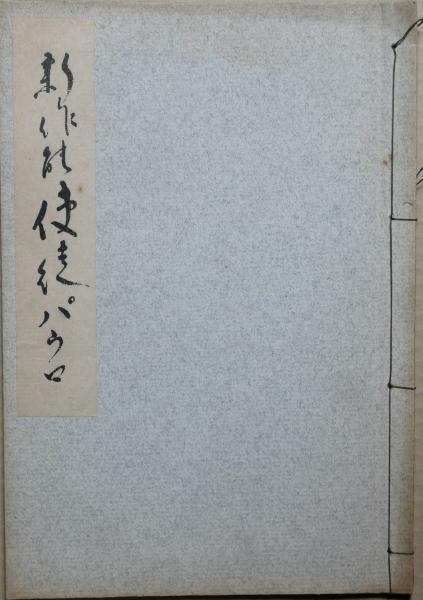 新作能使徒パウロ